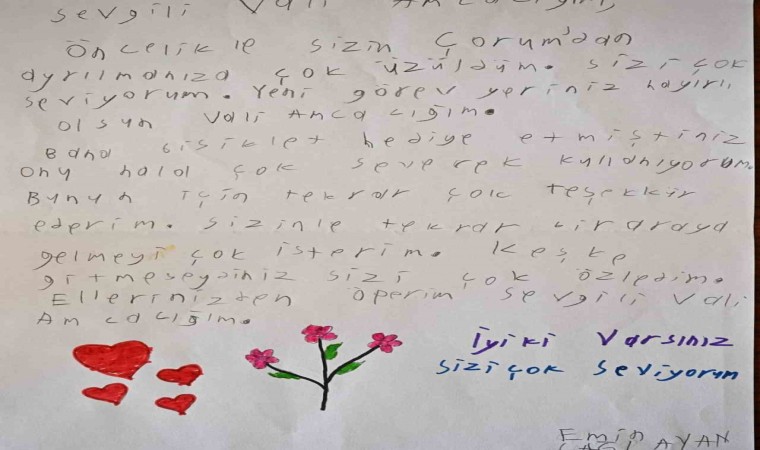 Sevgili Vali Amcacığım,
Öncelikle sizin Çorum'dan
ayrılmanıza çok üzüldüm. Sizi çok
seviyorum. Yeni görev yeriniz hayırlı
olsun Vali Amcacığım.
Bana bisiklet hediye etmiştiniz
onu hala çok severek kullanıyorum.
Bunun için tekrar çok teşekkir
ederim. Sizinle tekrar bir araya
gelmeyi çok isterim. Keşke
gitmeseydiniz sizi çok özledim.
Ellerinizden öperim Sevgili Vali
Amcacığım.
İyiki Varsınız
Sizi çok seviyorum
Emin
AYAN